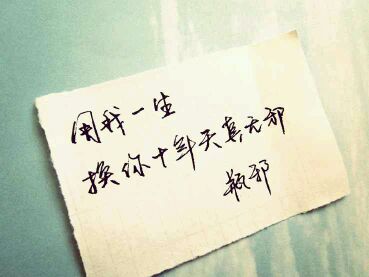 用我一生
换你十年天真无邪
瓶邪